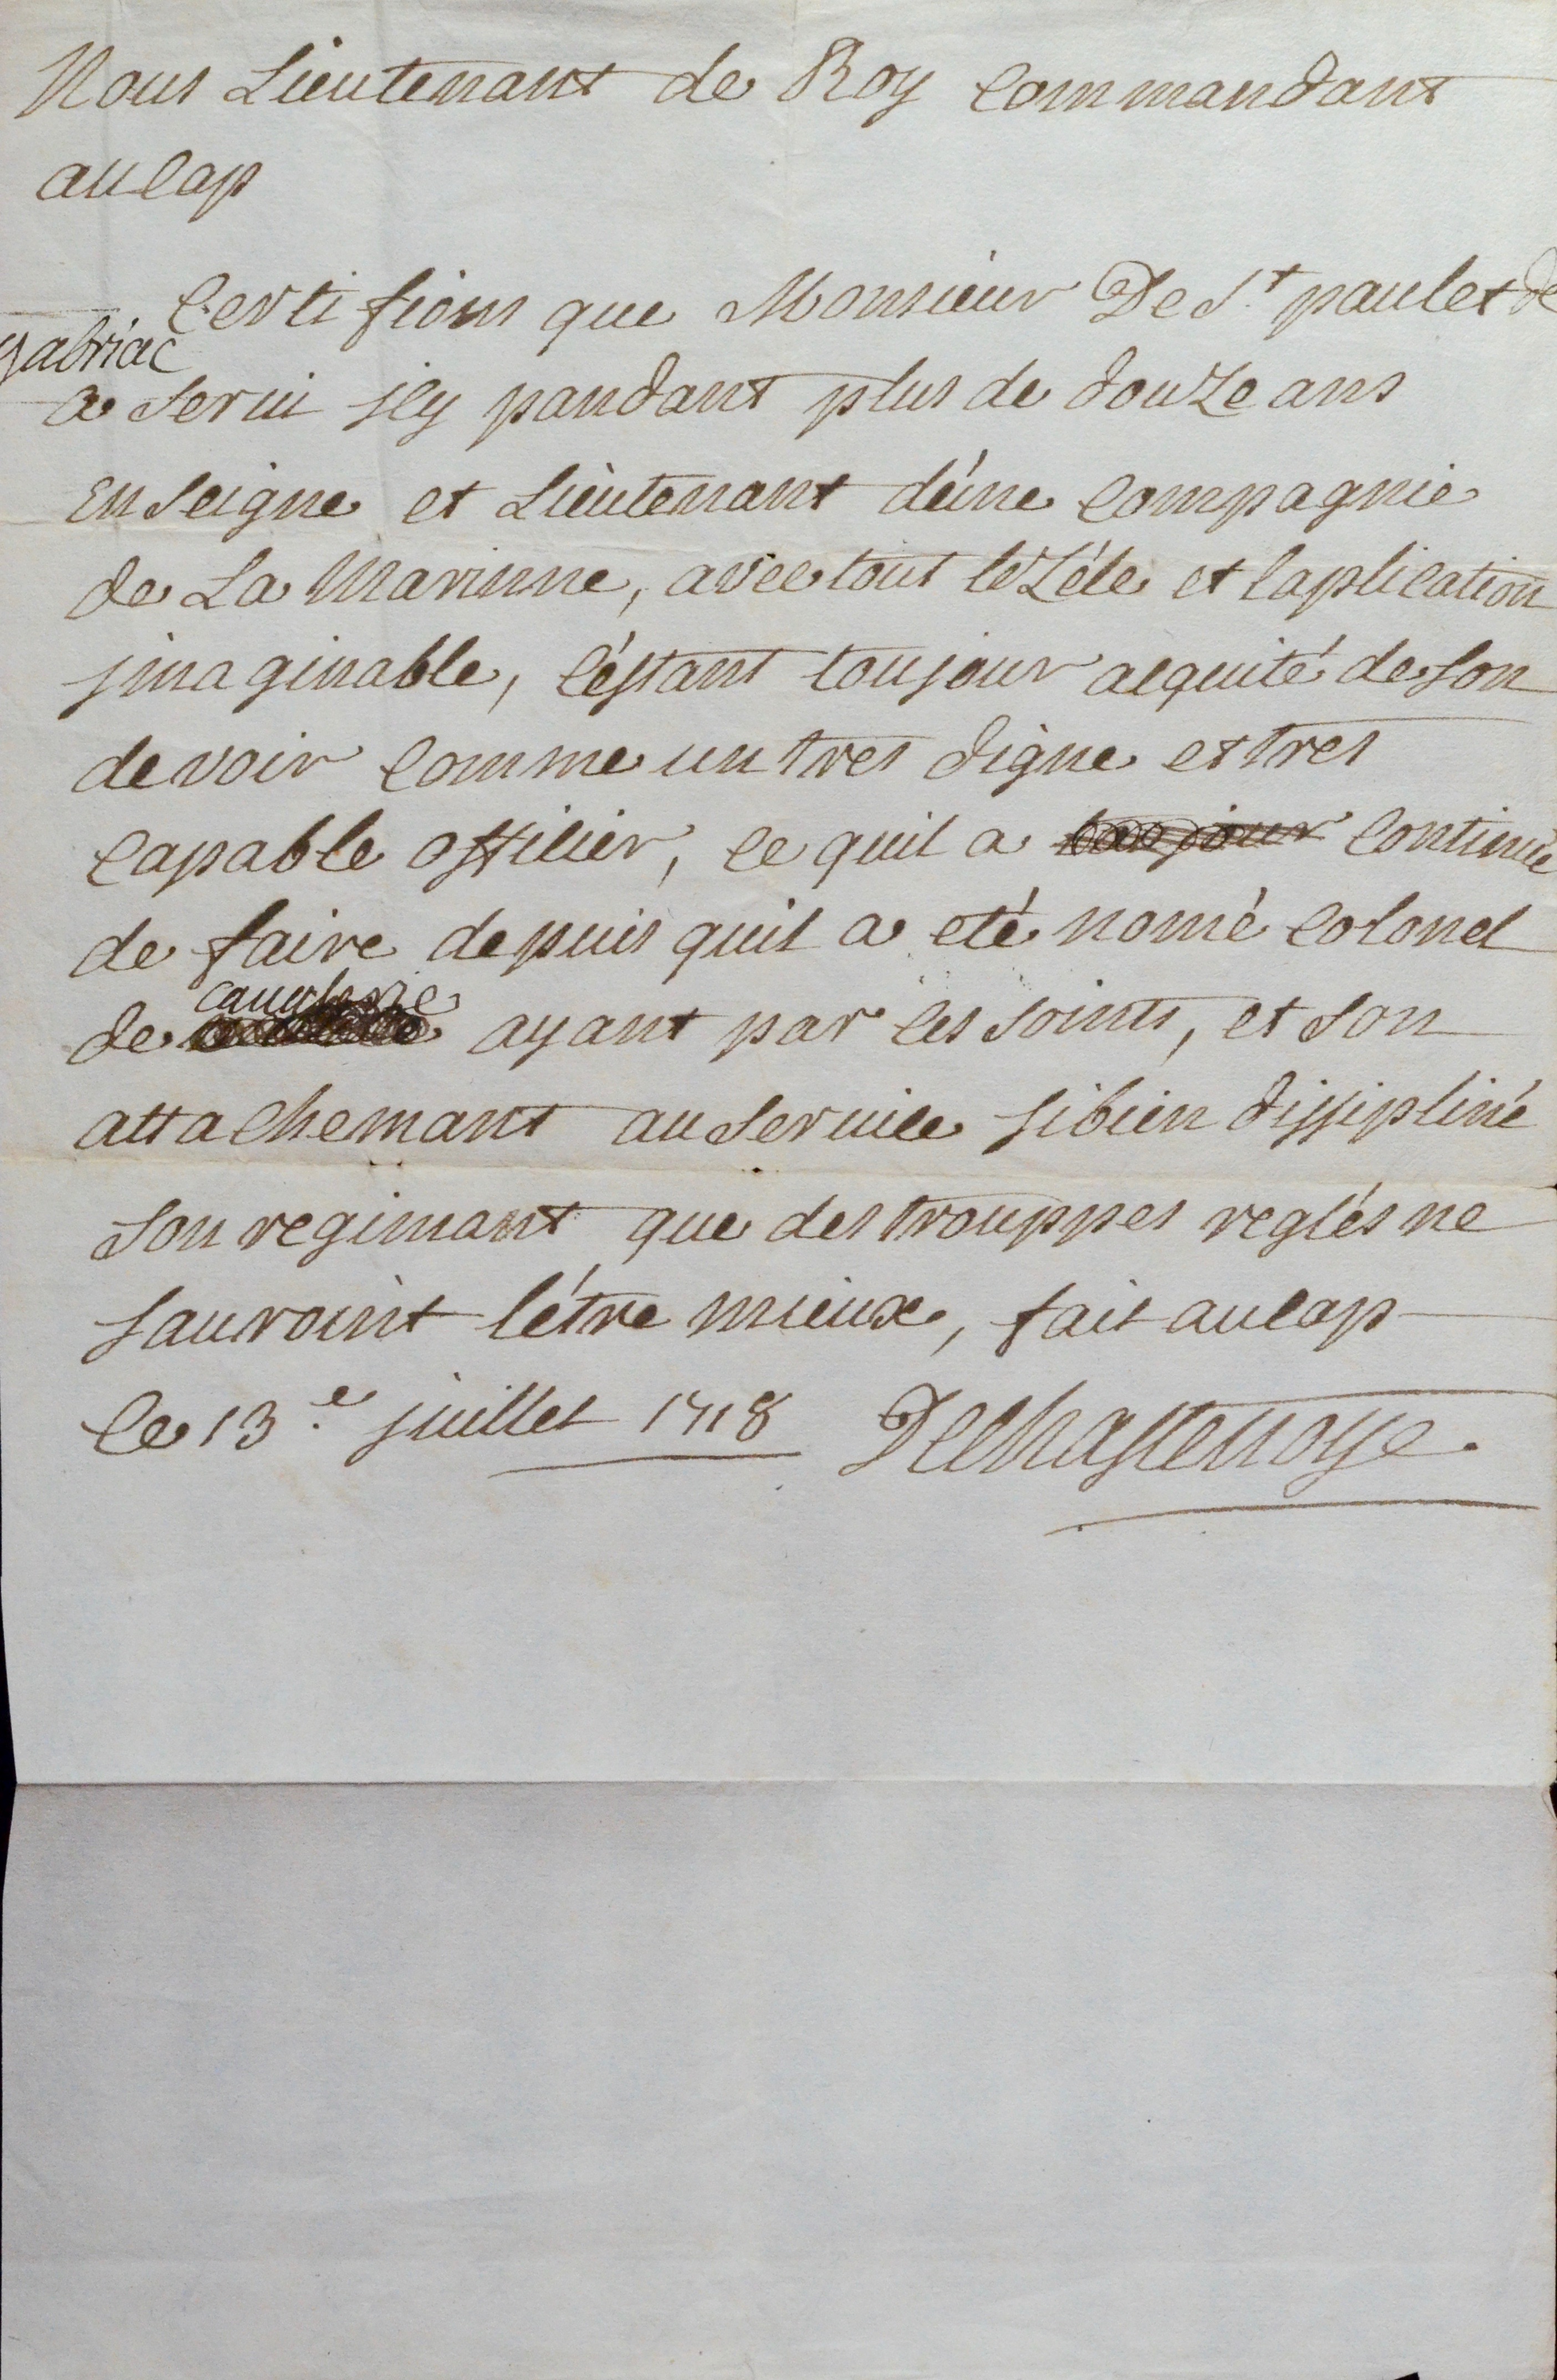 Nous Lieutenant de Roy Commandant
au Cap
Certifions que Monsieur De St paulet de
gabriac
a servi jcy pandant plus de douze ans
Enseigne et Lieutenant d'une Compagnie
de La Marinne, avec tout le Zéle et laplication
jmaginable, céstant toujour acquité de son
devoir Comme un tres digne et tres
Capable officier, ce quil a toujour Continué
de faire depuis quil a eté nomé Colonel
cavalerie
de ayant par ces soints, et son
attachemant au service sibien dissipliné
son regimant que des trouppes reglés ne
sauroint létre mieux, fait au Cap
Ce 13e juillet 1718 DeChastenoye.